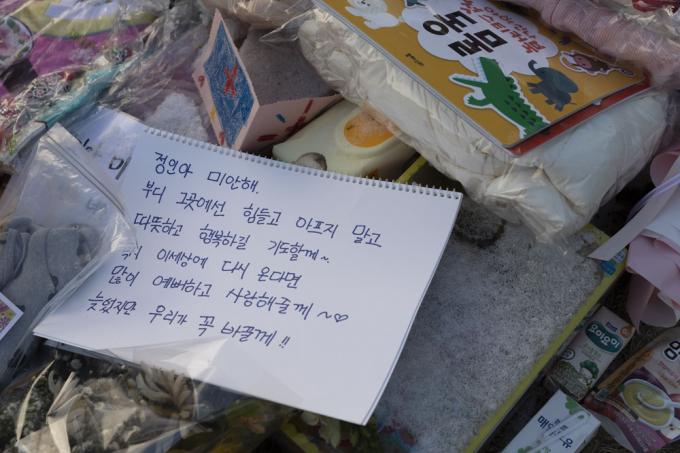 동물
정인아 미안해.
부디 그곳에선 힘들고 아프지 말고
따뜻하고 행복하길 기도할게~
이세상에 다시 온다면
많이 예뻐하고 사랑해줄게~♡
늦었지만 우리가 꼭 바꿀게!!